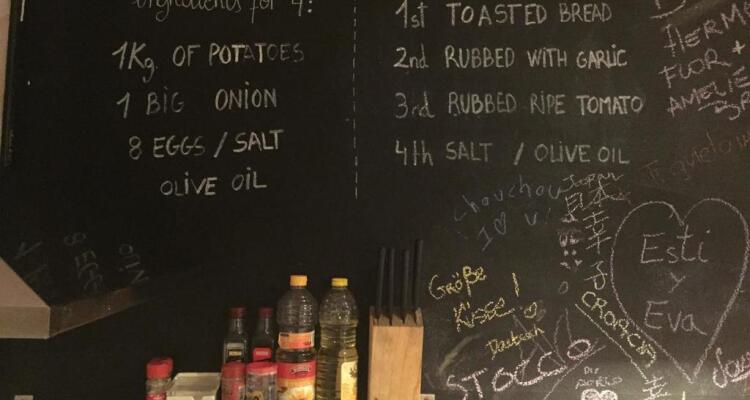 Ingredients for 4:
1Kg. OF POTATOES
1 BIG ONION
8 EGGS / SALT
OLIVE OIL
1st TOASTED BREAD
2nd RUBBED WITH GARLIC
3rd RUBBED RIPE TOMATO
4th SALT / OLIVE OIL
FLOR +
AMELIE
Te quiero
chouchou
I ♡ U!
Japan
日本
幸子
Esti
y
Eva
Größe
Küsse!
CROACIA
STOCO
幸